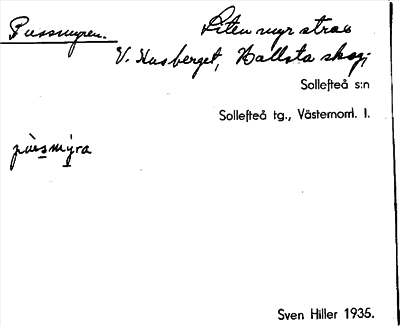 Pussmyren. Liten myr strax
V. Husberget, Hallsta skog;
Sollefteå s:n
Sollefteå tg., Västernorrl. l.
pùsmýra
Sven Hiller 1935.